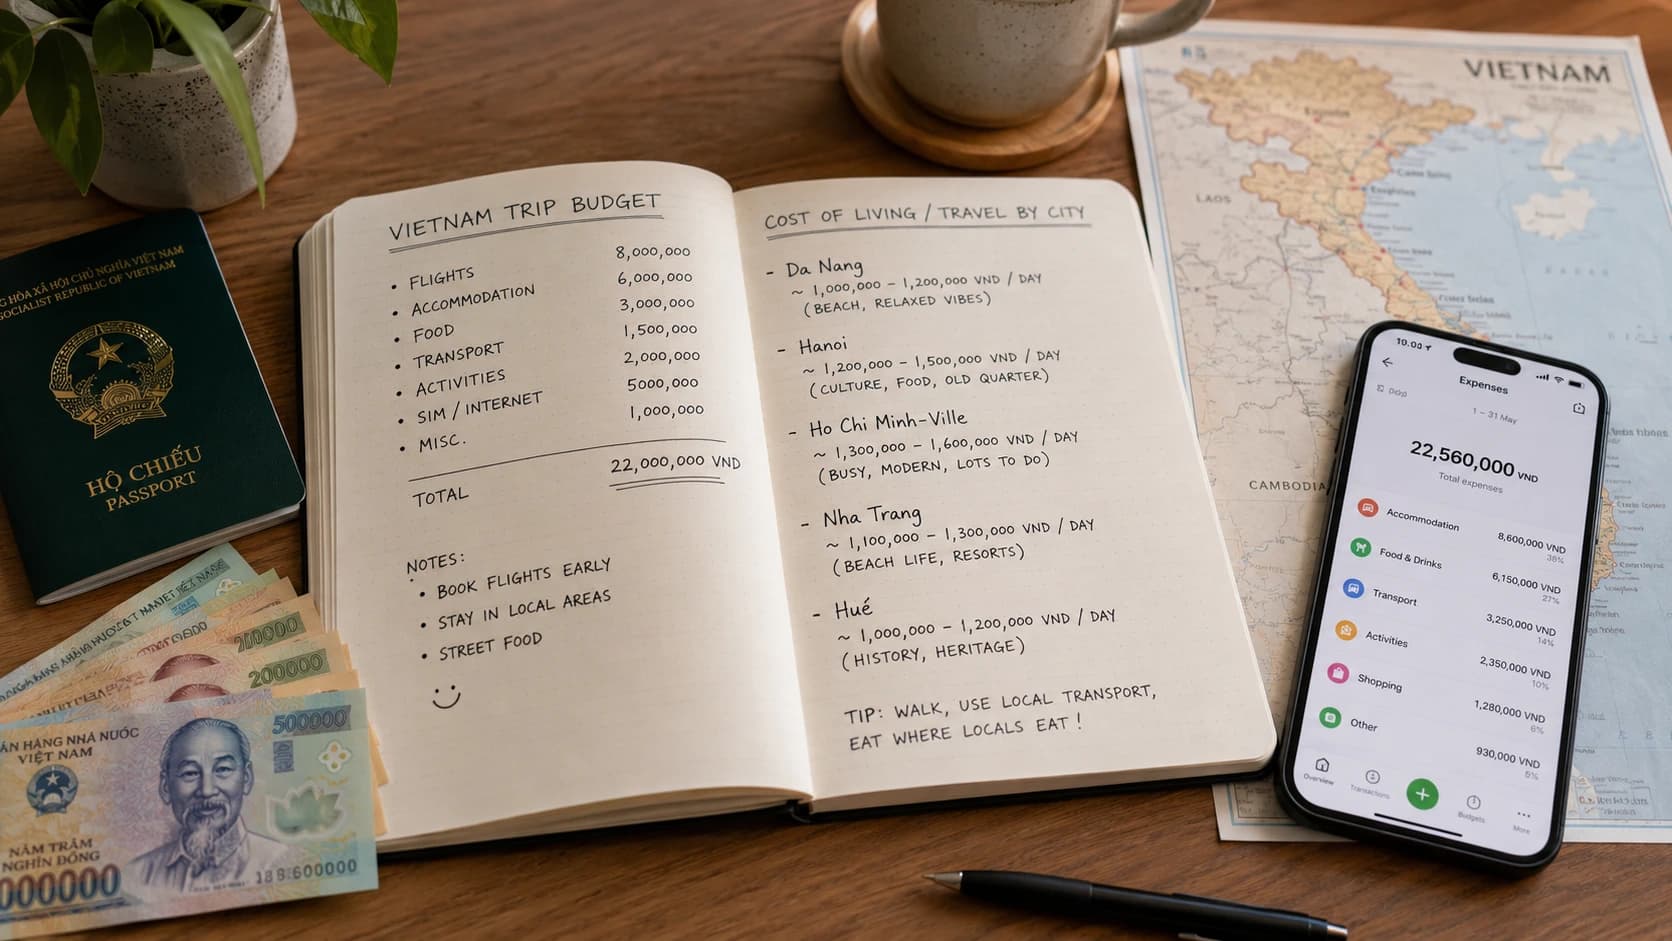 VIETNAM TRIP BUDGET
• FLIGHTS 8,000,000
• ACCOMMODATION 6,000,000
• FOOD 3,000,000
• TRANSPORT 1,500,000
• ACTIVITIES 2,000,000
• SIM / INTERNET 5000,000
• MISC. 1,000,000
TOTAL 22,000,000 VND
NOTES:
• BOOK FLIGHTS EARLY
• STAY IN LOCAL AREAS
• STREET FOOD
COST OF LIVING / TRAVEL BY CITY
- Da Nang
~ 1,000,000 - 1,200,000 VND / DAY
(BEACH, RELAXED VIBES)
- Hanoi
~ 1,200,000 - 1,500,000 VND / DAY
(CULTURE, FOOD, OLD QUARTER)
- Ho Chi Minh-Ville
~ 1,300,000 - 1,600,000 VND / DAY
(BUSY, MODERN, LOTS TO DO)
- Nha Trang
~ 1,100,000 - 1,300,000 VND / DAY
(BEACH LIFE, RESORTS)
- Hué
~ 1,000,000 - 1,200,000 VND / DAY
(HISTORY, HERITAGE)
TIP: WALK, USE LOCAL TRANSPORT,
EAT WHERE LOCALS EAT !
HÒA XÃ HỘI CHỦ NGHĨA VIỆT NAM
SOCIALIST REPUBLIC OF VIETNAM
HỘ CHIẾU
PASSPORT
200000
500000
HÀNG NHÀ NƯỚC
VIỆT NAM
NĂM TRĂM
NGHÌN ĐỒNG
000000
VIETNAM
LAOS
CAMBODIA
Expenses
1 – 31 May
22,560,000 VND
Total expenses
Accommodation 8,600,000 VND
38%
Food & Drinks 6,150,000 VND
27%
Transport 3,250,000 VND
14%
Activities 2,350,000 VND
10%
Shopping 1,280,000 VND
6%
Other 930,000 VND
5%
Overview
Transactions
Budgets
More